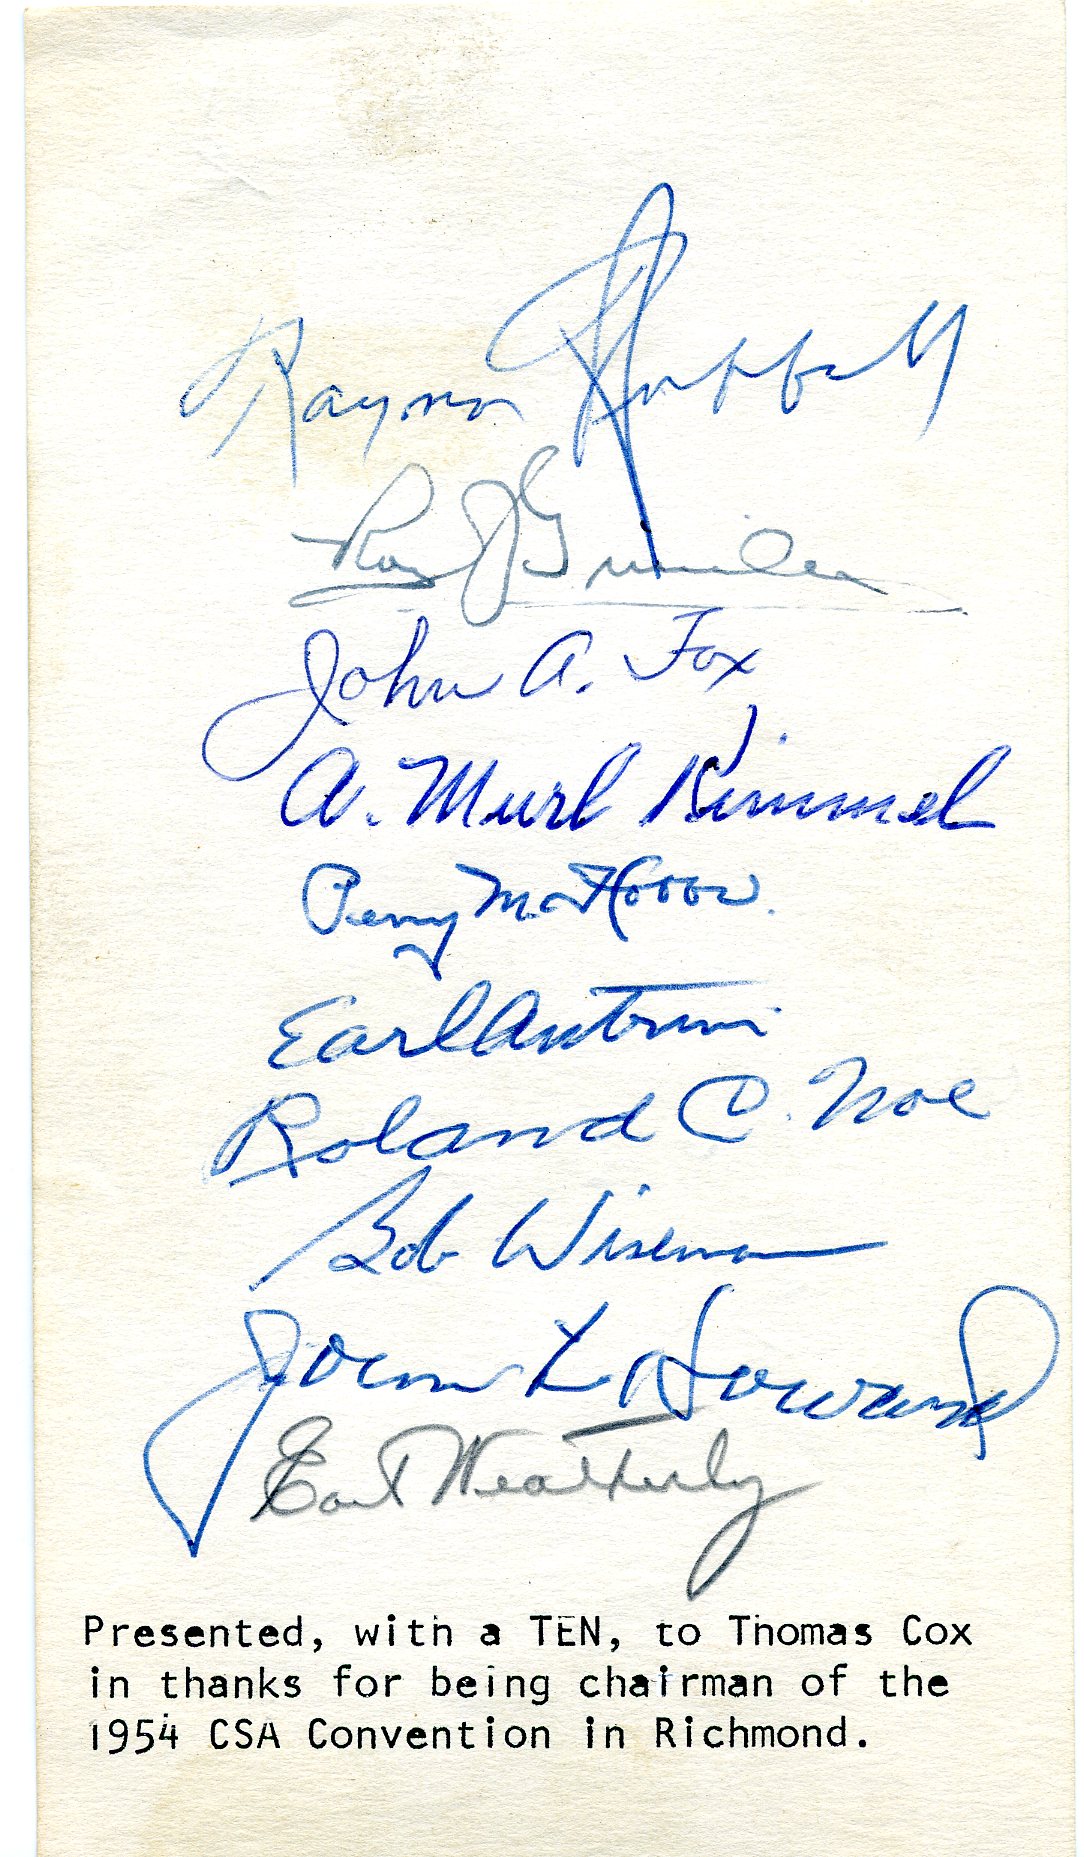 Raynor Hubbell
Roy J
John A. Fox
A. Murl Kimmel
Perry
Earl Antrum
Roland C. Noe
Bob Wiseman
John L Howard
Earl Weatherly
Presented, with a TEN, to Thomas Cox
in thanks for being chairman of the
1954 CSA Convention in Richmond.